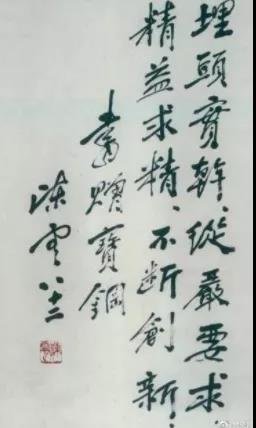 埋頭實幹、從嚴要求、
精益求精、不断創新。
書贈寶鋼
陳雲 八十二